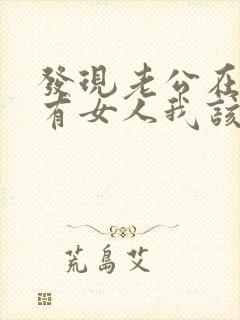 發現老公在
有女人我該
荒島艾